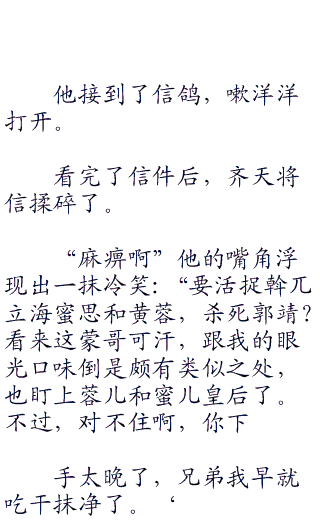 他接到了信鸽，嗽洋洋
打开。
看完了信件后，齐天将
信揉碎了。
“麻痹啊”他的嘴角浮
现出一抹冷笑：“要活捉斡兀
立海蜜思和黄蓉，杀死郭靖？
看来这蒙哥可汗，跟我的眼
光口味倒是颇有类似之处，
也盯上蓉儿和蜜儿皇后了。
不过，对不住啊，你下
手太晚了，兄弟我早就
吃干抹净了。‘